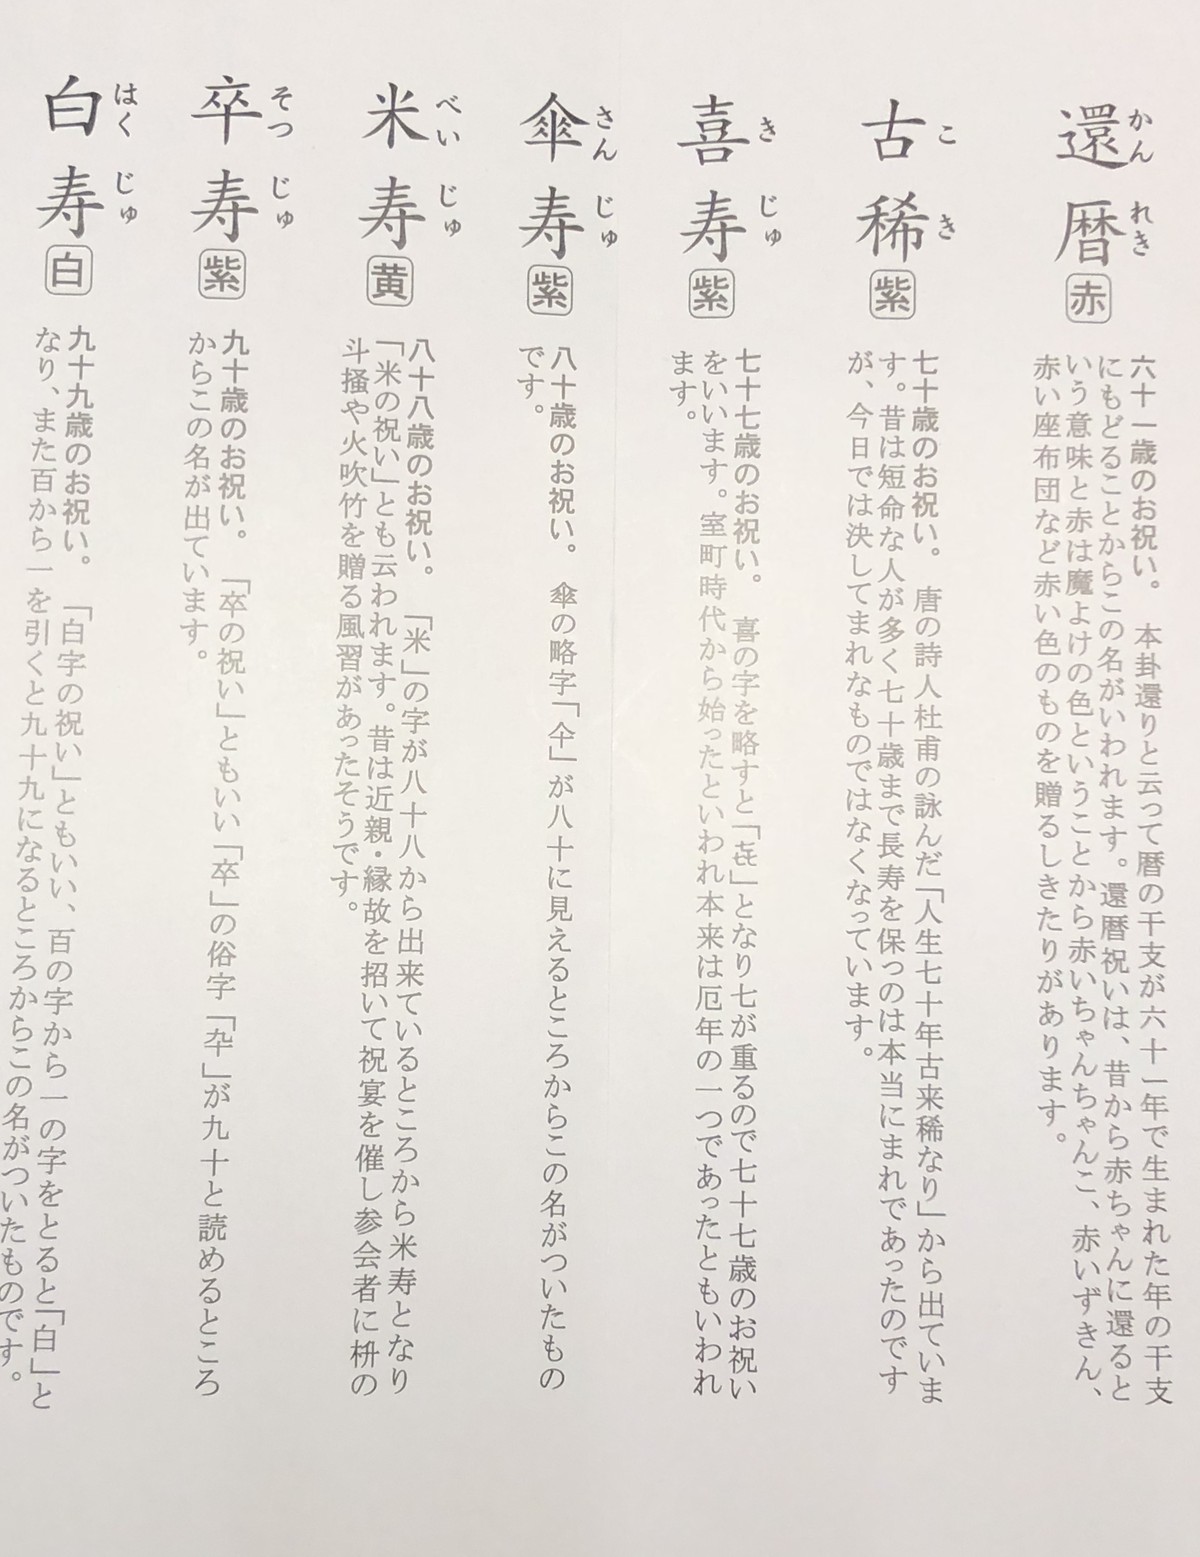 還暦
かんれき
赤
六十一歳のお祝い。　本卦還りと云って暦の干支が六十一年で生まれた年の干支
にもどることからこの名がいわれます。還暦祝いは、昔から赤ちゃんに還ると
いう意味と赤は魔よけの色ということから赤いちゃんちゃんこ、赤いずきん、
赤い座布団など赤い色のものを贈るしきたりがあります。
古稀
こき
紫
七十歳のお祝い。　唐の詩人杜甫の詠んだ「人生七十年古来稀なり」から出ていま
す。昔は短命な人が多く七十歳まで長寿を保つのは本当にまれであったのです
が、今日では決してまれなものではなくなっています。
喜寿
きじゅ
紫
七十七歳のお祝い。　喜の字を略すと「㐂」となり七が重るので七十七歳のお祝い
をいいます。室町時代から始ったといわれ本来は厄年の一つであったともいわれ
ます。
傘寿
さんじゅ
紫
八十歳のお祝い。　傘の略字「仐」が八十に見えるところからこの名がついたもの
です。
米寿
べいじゅ
黄
八十八歳のお祝い。　「米」の字が八十八から出来ているところから米寿となり
「米の祝い」とも云われます。昔は近親・縁故を招いて祝宴を催し参会者に枡の
斗掻や火吹竹を贈る風習があったそうです。
卒寿
そつじゅ
紫
九十歳のお祝い。　「卒の祝い」ともいい「卒」の俗字「卆」が九十と読めるところ
からこの名が出ています。
白寿
はくじゅ
白
九十九歳のお祝い。　「白字の祝い」ともいい、百の字から一の字をとると「白」と
なり、また百から一を引くと九十九になるところからこの名がついたものです。